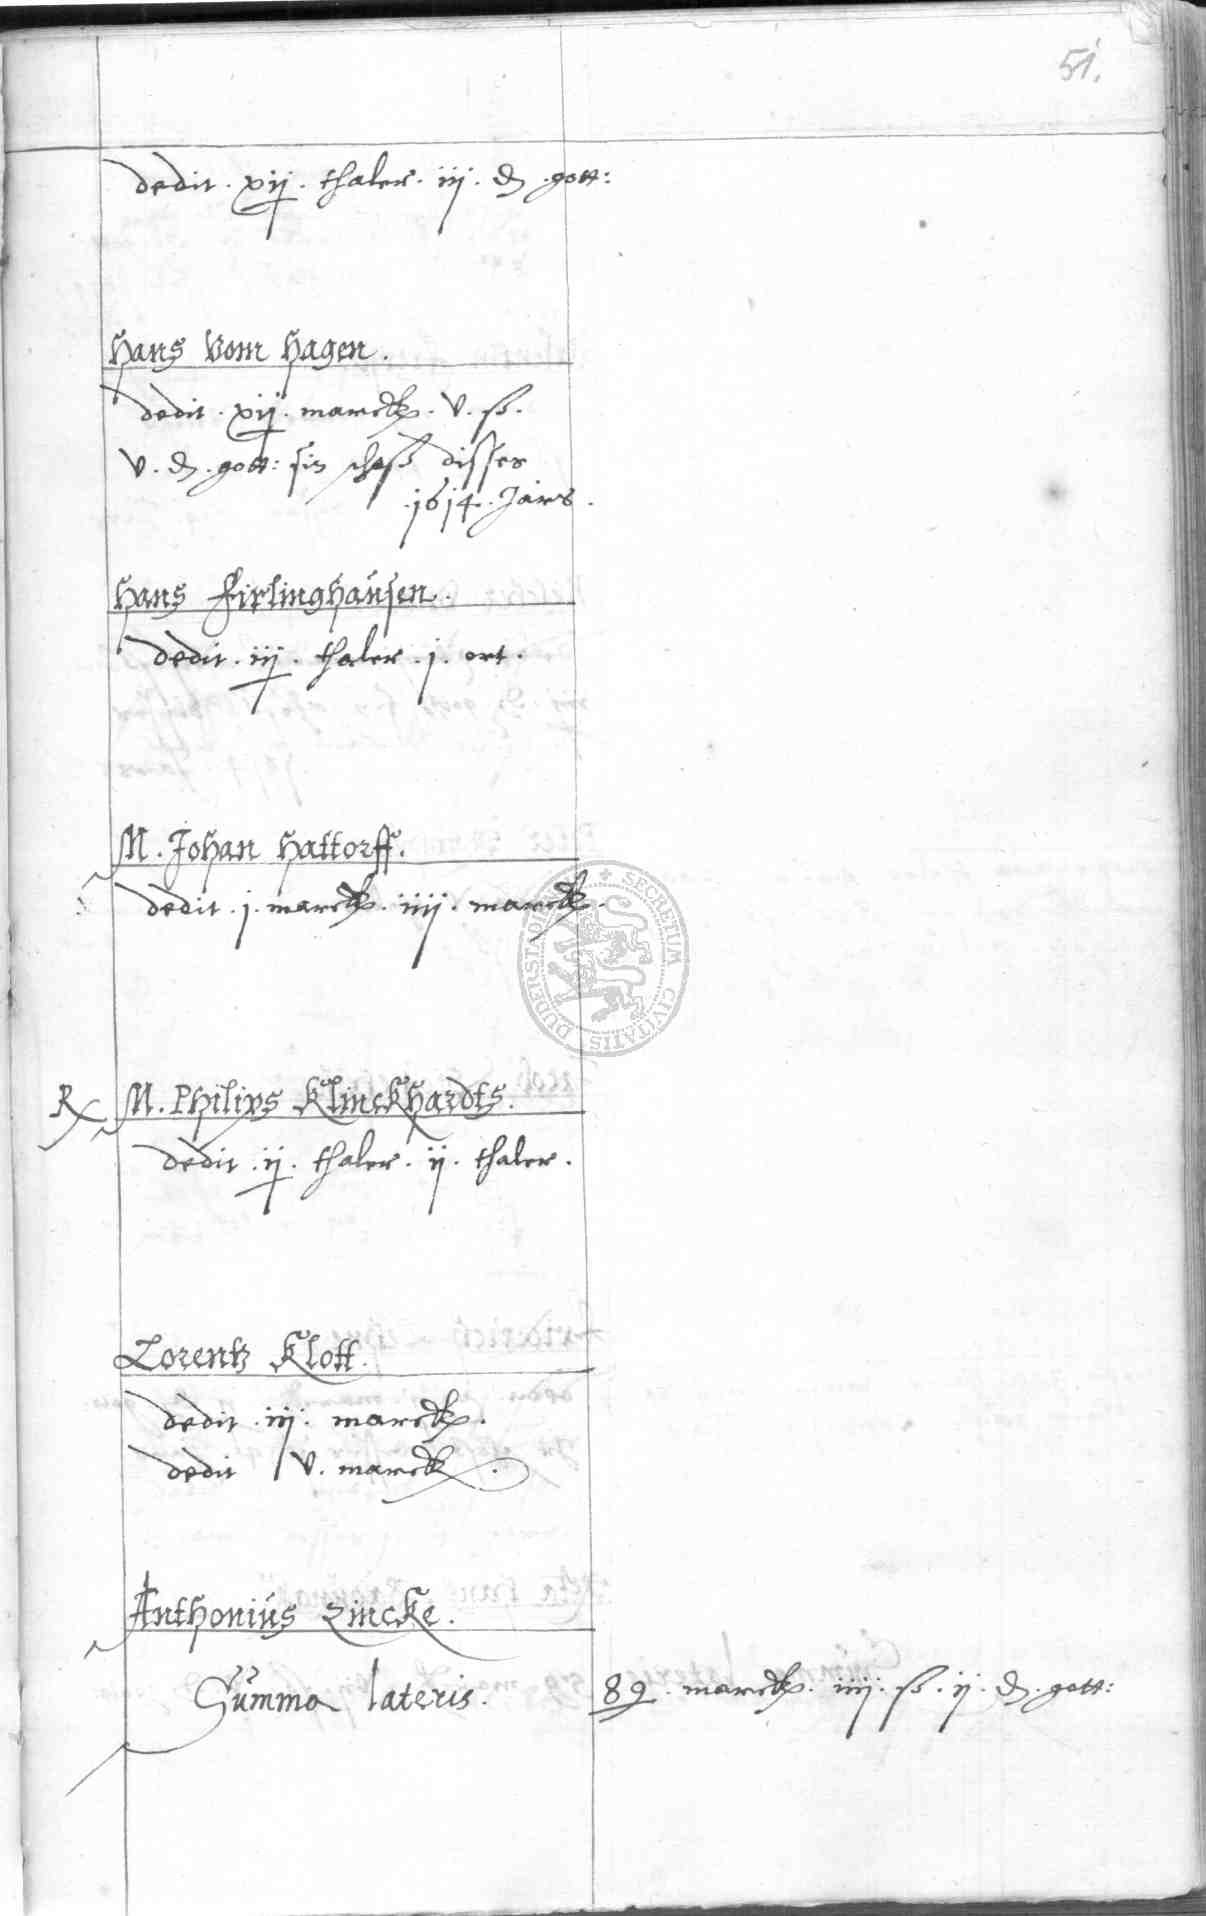 51.
dedit . xij . thaler . iij . ₰ . gott:
Hans Vom Hagen.
dedit . xij . marck . v . ß .
v . ₰ . gott: sin schoß disses
.1614. Jars .
Hans Firlinghausen.
dedit . iij . thaler . j . ort .
M. Johan Hattorff.
dedit . j . marck . iiij . marck .
SECRETUM CIVITATIS DUDERSTADIENSIS
R M. Philips Klinckhardts.
dedit . ij . thaler . ij . thaler .
Lorentz Klott.
dedit . iij . marck .
dedit v . marck .
Anthonius Zincke.
Summa lateris. 89 . marck . iiij . ß . ij . ₰ . gott: